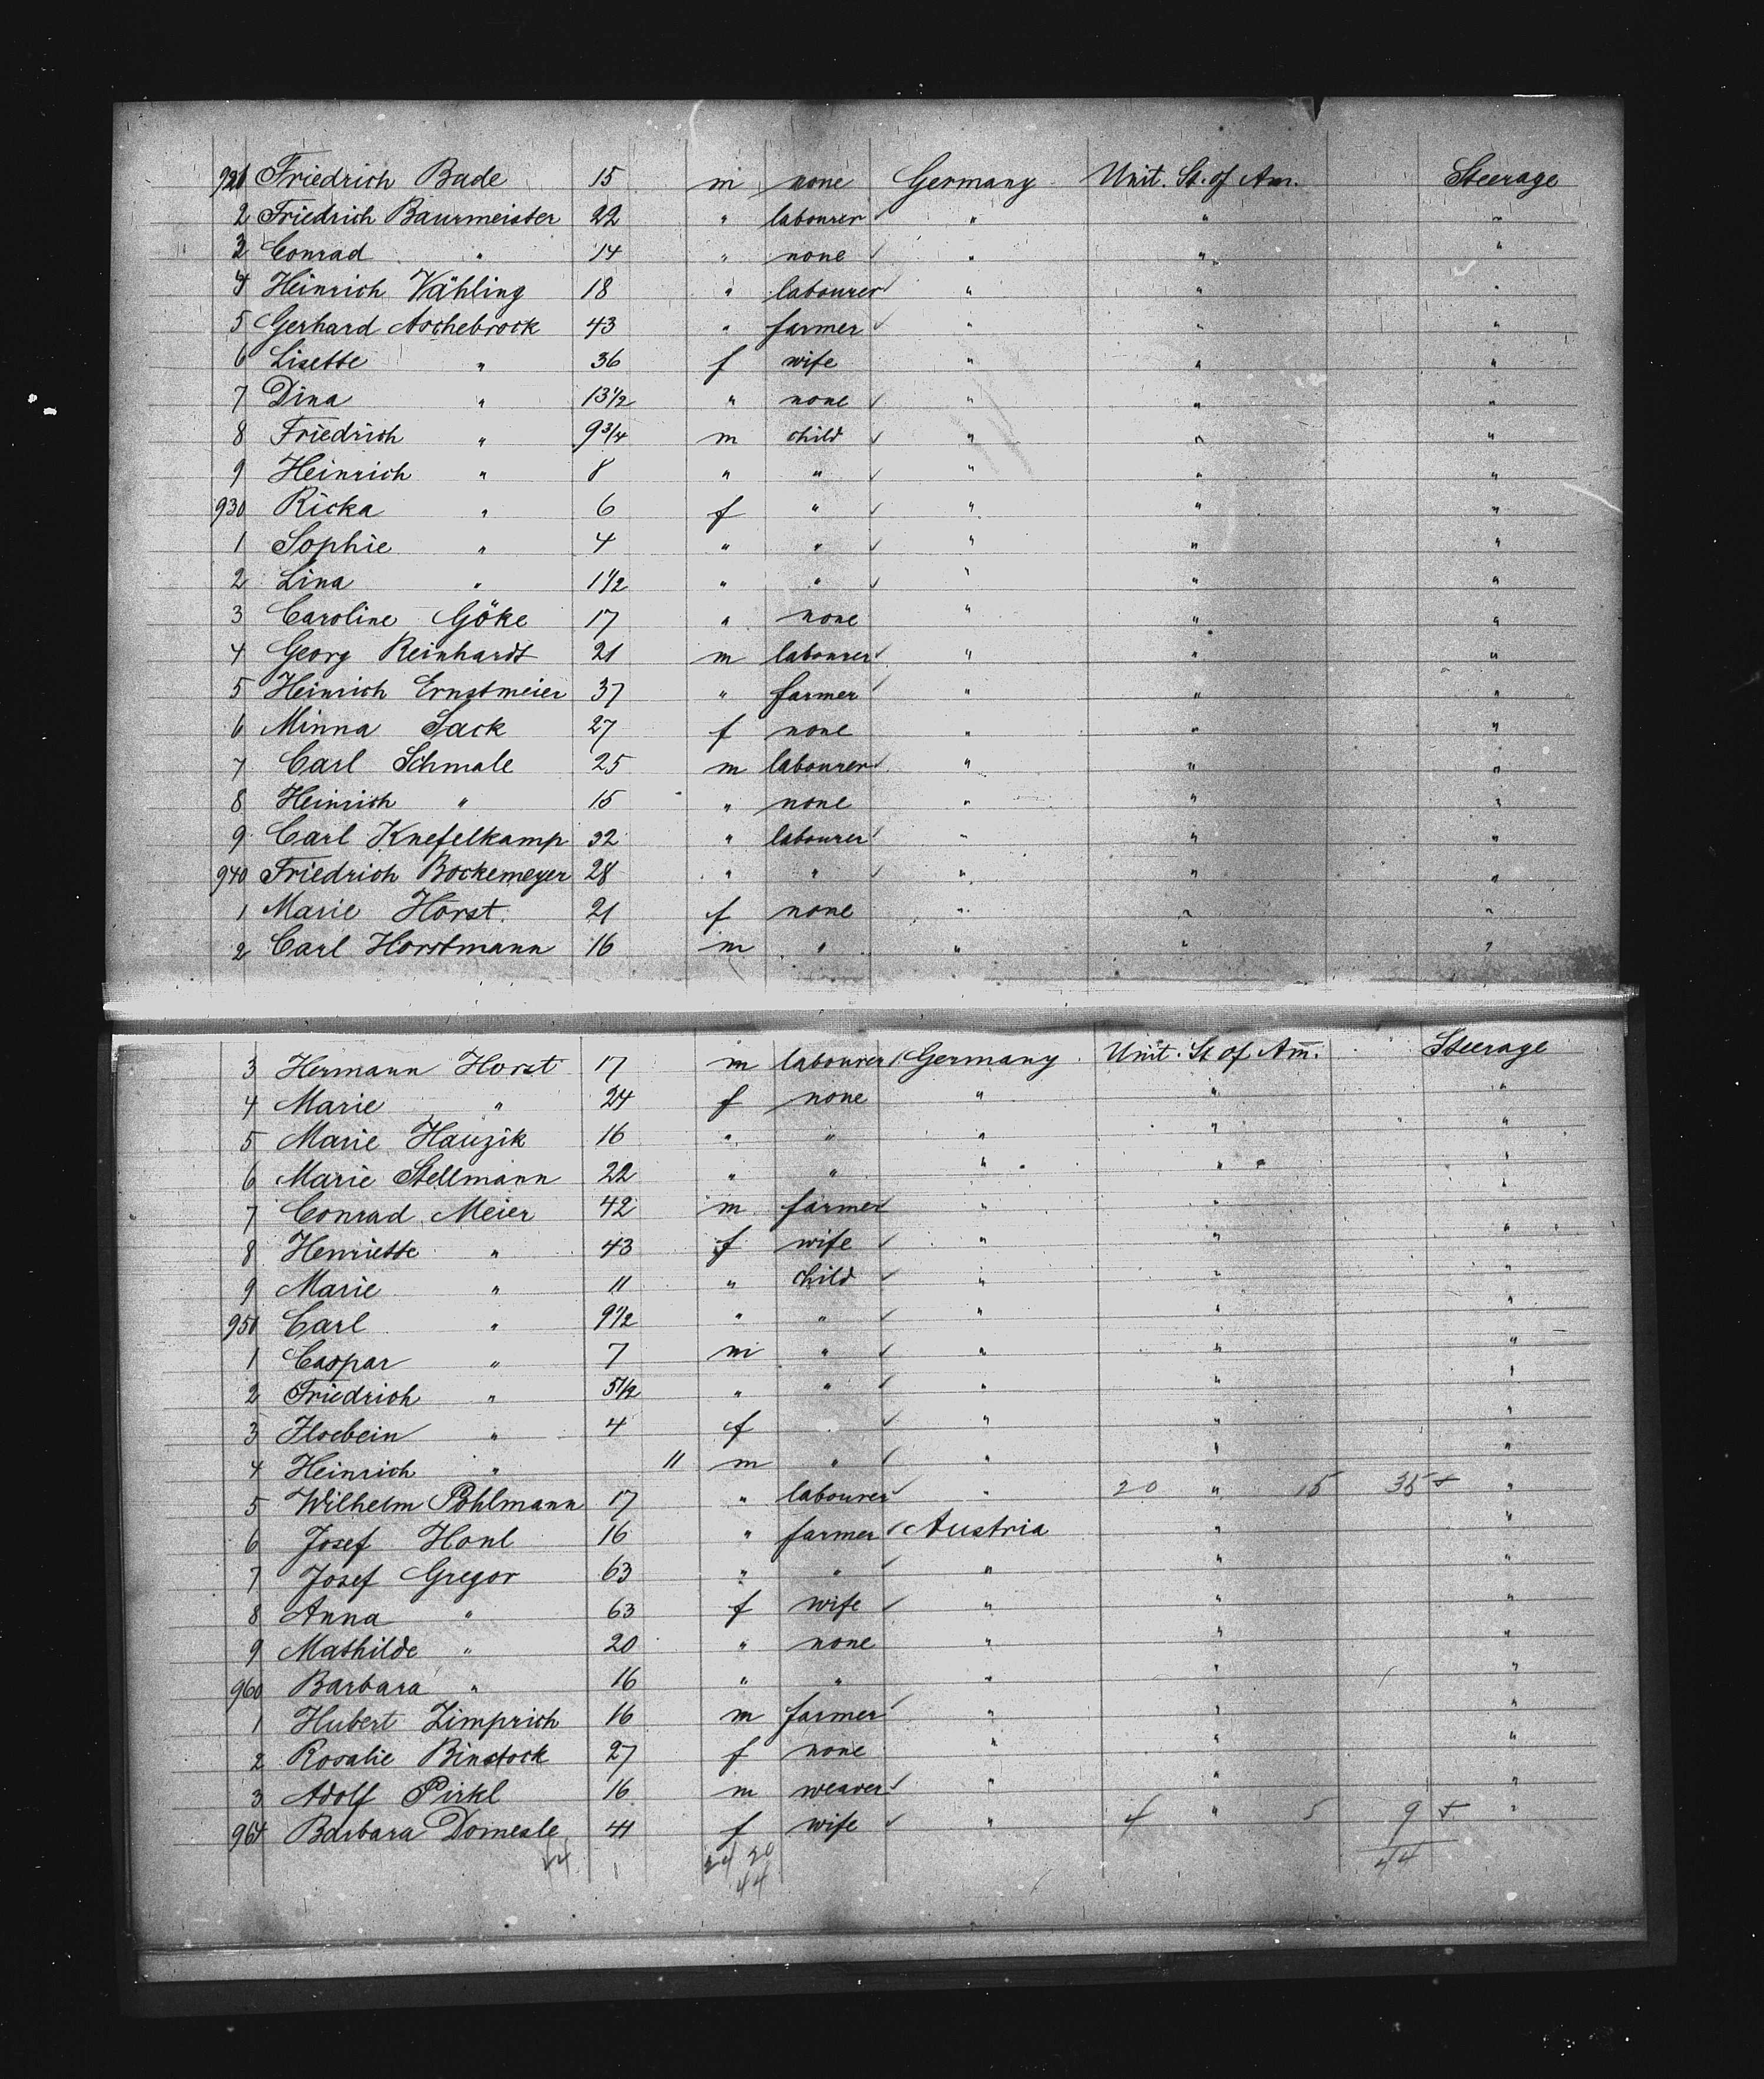 921 Friedrich Bade 15 m none Germany Unit. St. of Am. Steerage
2 Friedrich Baurmeister 22 " labourer " " "
3 Conrad " 14 " none " " "
4 Heinrich Vähling 18 " labourer " " "
5 Gerhard Aschebrock 43 " farmer " " "
6 Lisette " 36 f wife " " "
7 Dina " 13 1/2 " none " " "
8 Friedrich " 9 3/4 m child " " "
9 Heinrich " 8 " " " " "
930 Ricka " 6 f " " " "
1 Sophie " 4 " " " " "
2 Lina " 1 1/2 " " " " "
3 Caroline Göke 17 " none " " "
4 Georg Reinhardt 21 m labourer " " "
5 Heinrich Ernstmeier 37 " farmer " " "
6 Minna Sack 27 f none " " "
7 Carl Schmale 25 m labourer " " "
8 Heinrich " 15 " none " " "
9 Carl Knefelkamp 32 " labourer " " "
940 Friedrich Bockemeyer 28 " " " " "
1 Marie Horst. 21 f none " " "
2 Carl Horstmann 16 m " " " "
3 Hermann Horst 17 m labourer Germany Unit. St. of Am. Steerage
4 Marie " 24 f none " " "
5 Marie Hauzik 16 " " " " "
6 Marie Stellmann 22 " " " " "
7 Conrad Meier 42 m farmer " " "
8 Henriette " 43 f wife " " "
9 Marie " 11 " child " " "
950 Carl " 9 1/2 " " " " "
1 Caspar " 7 m " " " "
2 Friedrich " 5 1/2 " " " " "
3 " 4 f " " "
4 Heinrich " 11 m " " " "
5 Wilhelm Pöhlmann 17 " labourer " 20 " 15 35 + "
6 Josef Honl 16 " farmer Austria " "
7 Josef Gregor 63 " " " " "
8 Anna " 63 f wife " " "
9 Mathilde " 20 " none " " "
960 Barbara " 16 " " " " "
1 Hubert Zimprich 16 m farmer " " "
2 Rosalie Binstock 27 f none " " "
3 Adolf Pirkl 16 m weaver " " "
964 Barbara Domesle 41 f wife " 4 " 5 9 + "
44 24 20 44
44